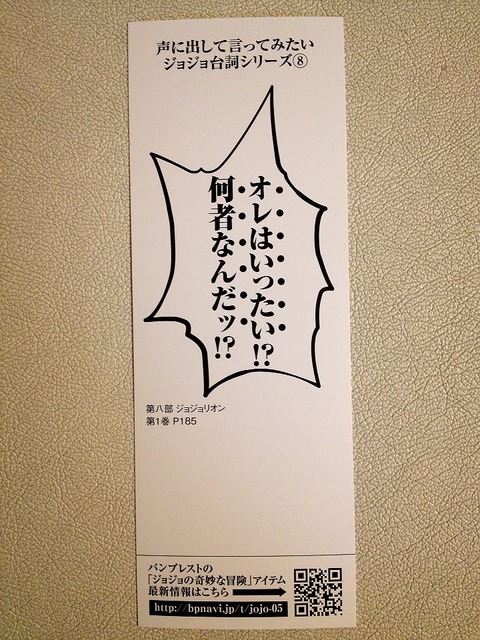 声に出して言ってみたい
ジョジョ台詞シリーズ⑧
オレはいったい!?
何者なんだッ!?
第八部 ジョジョリオン
第1巻 P185
バンプレストの
「ジョジョの奇妙な冒険」アイテム
最新情報はこちら
http://bpnavi.jp/t/jojo-05